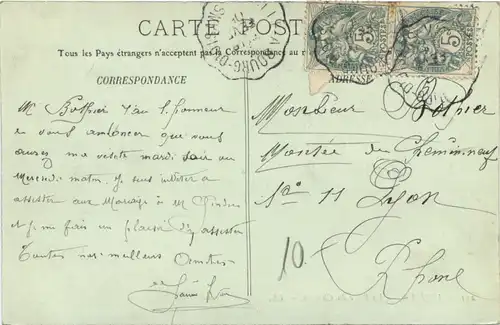 CARTE POST
Tous les Pays étrangers n'acceptent pas la Correspondance au
CORRESPONDANCE
ADRESSE
M Bothier j'ai l'honneur
de vous annoncer que vous
aurez ma visite mardi soir ou
Mercredi matin. Je suis inviter a
assister aux Mariage à M
et je me fais un plaisir d'y assister
Toutes nos meilleurs
Monsieur Bothier
Montée du Chemin neuf
No 11 Lyon
10
Rhone
5
5